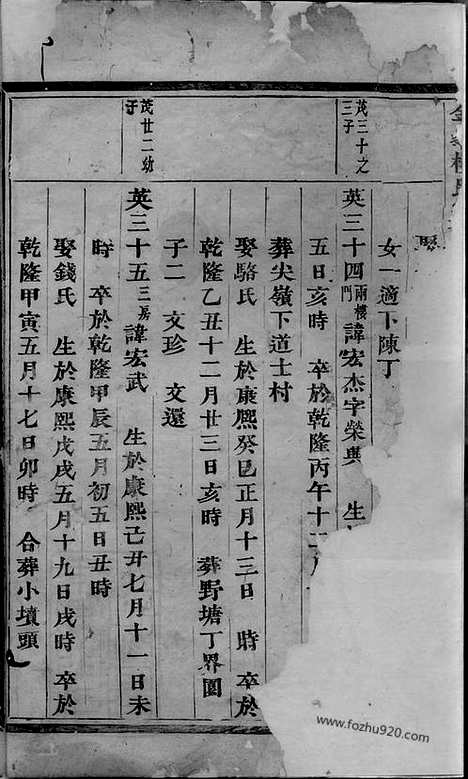 女一適下陳丁
茂三十之三子
英三十四兩樓門諱宏杰字榮典 生
五日亥時 卒於乾隆丙午十二月
葬尖嶺下道士村
娶駱氏 生於康熙癸巳正月十三日 時 卒於
乾隆乙丑十二月廿三日亥時 葬野塘丁界園
子二 文珍 文還
茂廿二幼子
英三十五三房諱宏武 生於康熙己丑七月十一日未
時 卒於乾隆甲辰五月初五日丑時
娶錢氏 生於康熙戊戌五月十九日戌時 卒於
乾隆甲寅五月十七日卯時 合葬小墳頭
www.fozhu920.com